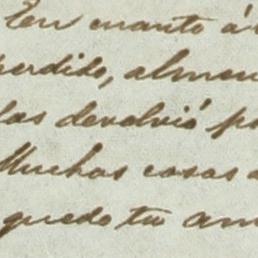 En cuanto á
perdido, almen
las devolvió p
Muchas cosas
quedo tu am